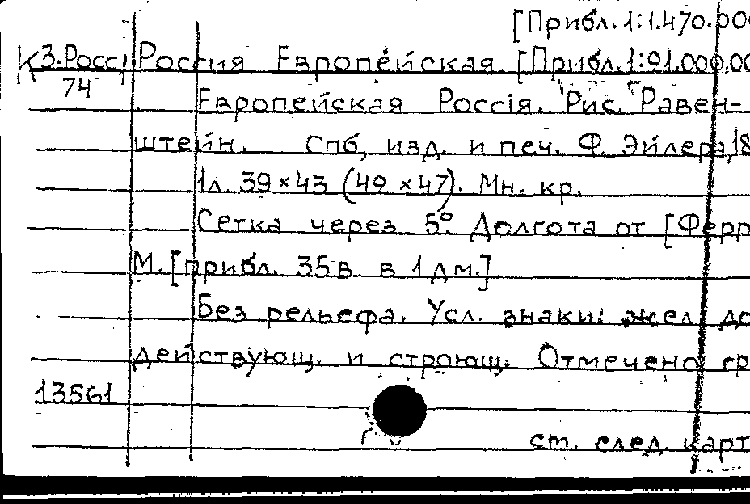 [Прибл. 1:1.470.000
К 3.Росс Россия Европейская. [Прибл. 1:91.000.00
74 Европейская Россія. Рис. Равен-
штейн. Спб, изд. и печ. Ф. Эйлера, 18
1л. 39×43 (49×47). Мн. кр.
Сетка через 5°. Долгота от [Ферр
М. [прибл. 35 в. в 1 дм.]
Без рельефа. Усл. знаки: жел. до
действующ. и строющ. Отмечено ср
13561
ст. след. карт